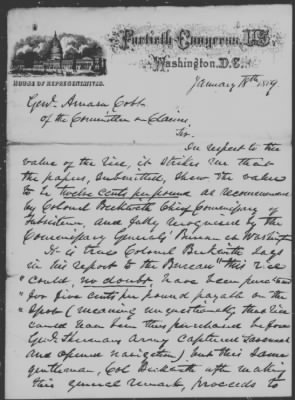 Fortieth Congress, U.S.
Washington, D.C.
HOUSE OF REPRESENTATIVES.
January 18th 1869
Genl. Amasa Cobb
of the Committee on Claims,
Sir.
In respect to the
value of the rice, it strikes me that
the papers, submitted, show the value
to be twelve cents per pound as recommended
by Colonel Beckwith Chief Commissary of
Subsistence, and fully recognized by the
Commissary Generals' Bureau in Washington
It is true Colonel Beckwith says
in his report to the Bureau "this rice
"could, no doubt, have been purchased
"for five cents per pound payable on the
"spot (meaning unquestionably, that rice
could have been thus purchased before
Genl Shermans Army captured Savannah
and opened navigation) but this same
gentleman, Col Beckwith after making
this general remark, proceeds to